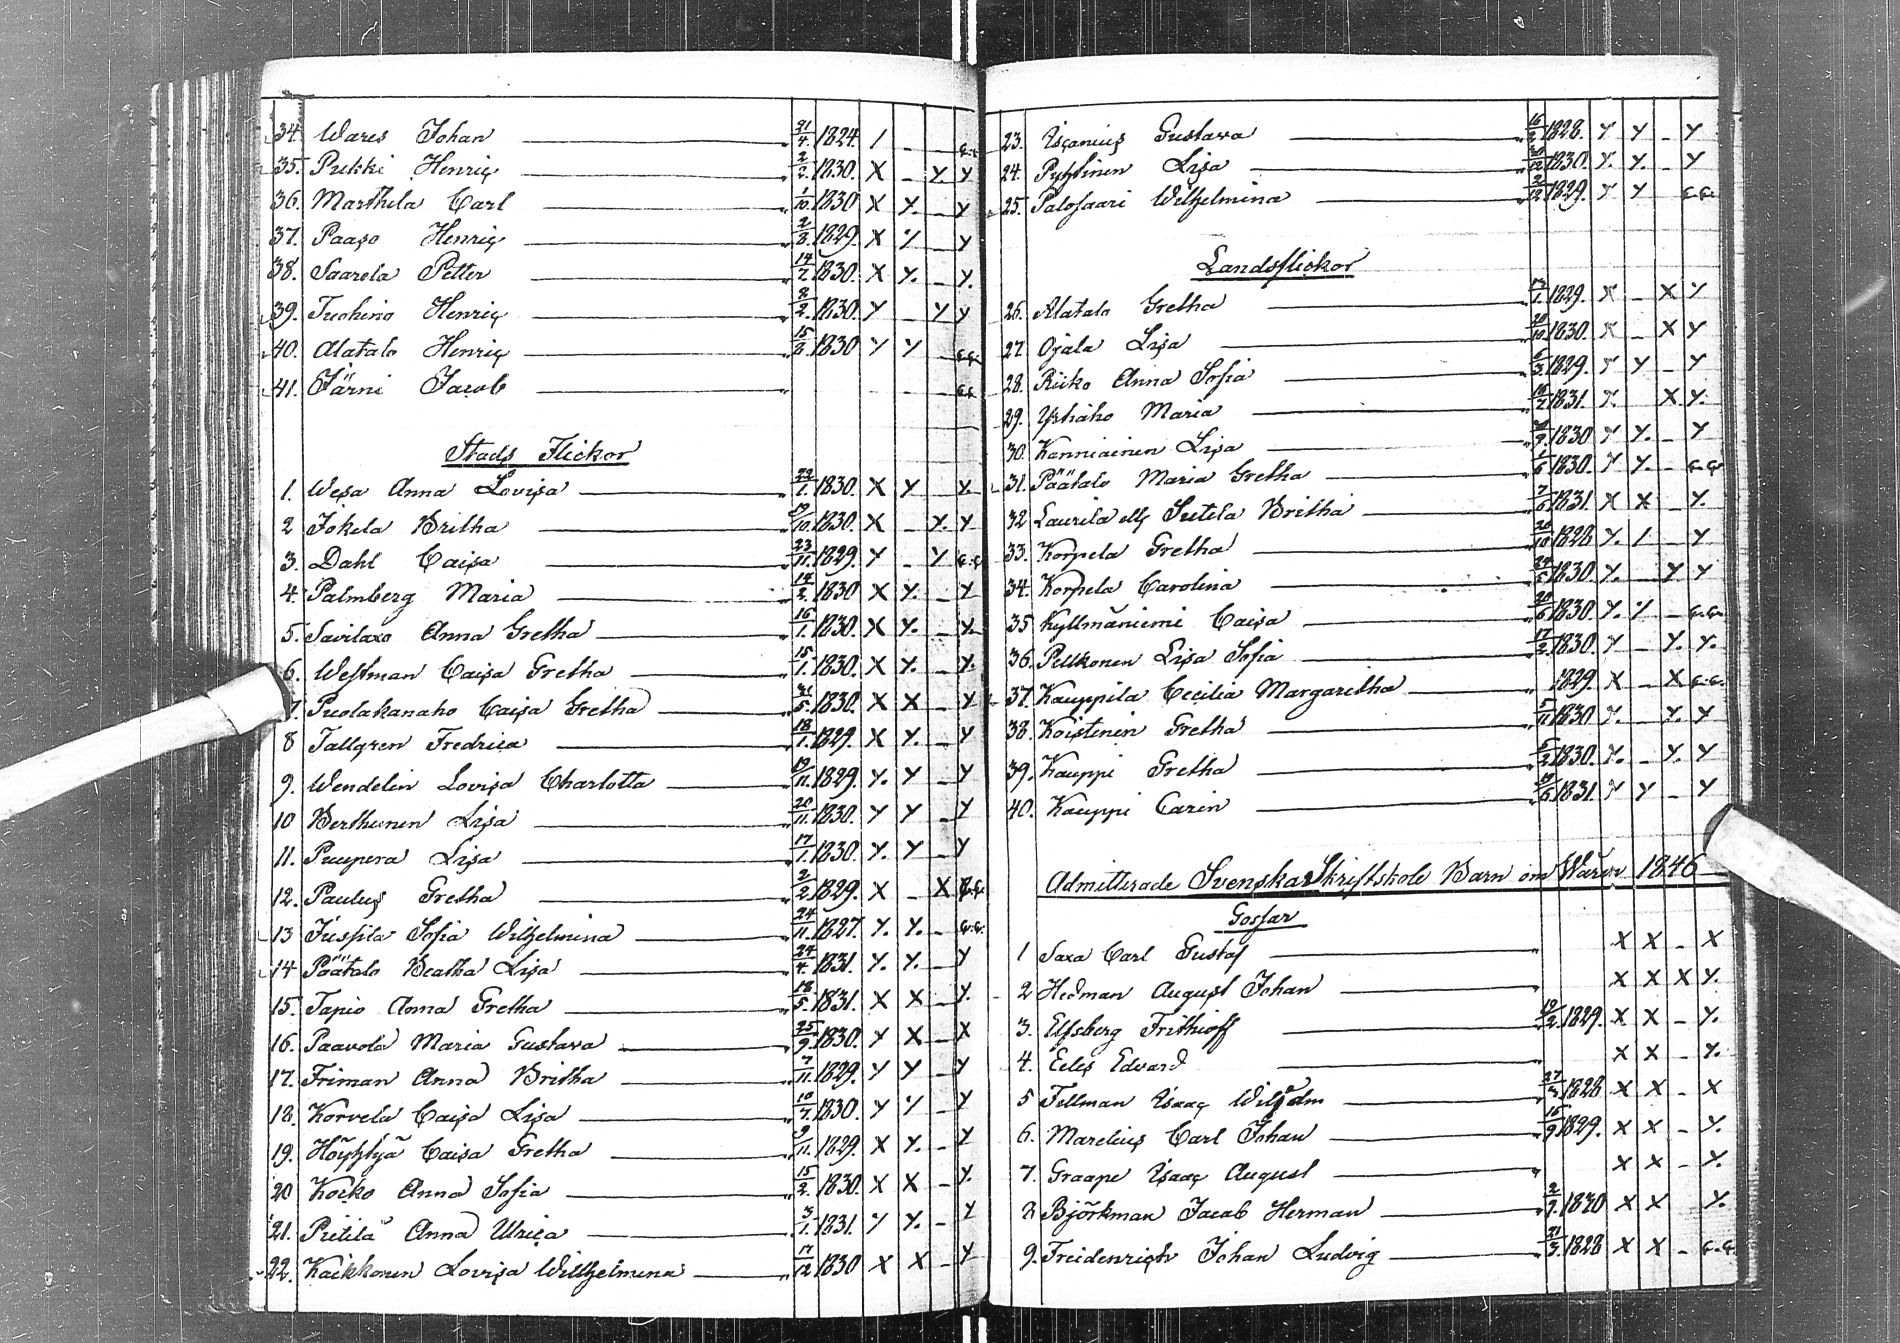 34. Wares Johan 21/4. 1824. / _ G.G.
35. Pukki Henric 2/2. 1830. X _ Y. Y
36. Marthela Carl 1/10. 1830 X Y. _ Y
37. Paaso Henric 2/8. 1829. X Y _ Y
38. Saarela Petter 14/7. 1830. X Y. _ Y.
39. Tuohino Henric 8/2. 1830. Y _ Y Y
40. Alatalo Henric 15/8. 1830 Y Y _ G.G.
41. Järni Jacob G.G.
Stads Flickor
1. Wesa Anna Lovisa 22/1. 1830. X Y Y.
2 Jokela Britha 29/10. 1830. X _ Y. Y
3. Dahl Caisa 23/11. 1829. Y _ Y G.G.
4. Palmberg Maria 14/2. 1830 X Y. _ Y
5. Savilaxo Anna Gretha 16/1. 1830. X Y. _ Y.
6. Westman Caisa Gretha 15/1. 1830. X Y. _ Y.
7. Puolakanaho Caisa Gretha 31/5. 1830. X X _ Y
8 Tallgren Fredrica 18/1. 1829. X Y. _ Y
9. Wendelin Lovisa Charlotta 19/11. 1829. Y. Y _ Y
10 Berthunen Lisa 20/11. 1830. Y Y _ Y
11. Puupera Lisa 17/1. 1830. Y. Y _ Y
12. Paulus Gretha 2/2 1829. X _ X G.G.
13 Jussila Sofia Wilhelmina 24/11. 1827. Y. Y. _ G.G.
14 Päätalo Beatha Lisa 24/4. 1831. Y. Y. _ Y
15. Tapio Anna Gretha 18/5. 1831. X X _ Y.
16. Paavola Maria Gustava 25/9. 1830. Y X _ X
17. Friman Anna Britha 7/11. 1829. Y Y _ Y
18. Korvela Caisa Lisa 10/7. 1830. Y Y _ Y
19. Höyhtyä Caisa Gretha 9/11. 1829. X Y. _ Y
20 Koiko Anna Sofia 15/2. 1830. X X _ Y.
21. Pietilä Anna Ulrica 3/1. 1831. Y Y. _ Y
22. Kaikkonen Lovisa Willhelmina 17/12 1830 X X _ Y
23. Iscanius Gustava 16/2. 1828. Y Y _ Y
24. Pyhtinen Lisa 12 1830. Y. Y. _ Y
25. Palosaari Wilhelmina 2/12 1829. Y Y G.G.
Landsflickor
26. Alatalo Gretha 1. 1829. X _ X Y
27 Ojala Lisa 20/10 1830. X _ X Y
28. Riiko Anna Sofia 6/3. 1829. Y Y _ Y
29. Yrhäho Maria 16/7 1831. Y. X Y.
30. Kanniainen Lisa 9. 1830 Y Y. _ Y
31. Päätalo Maria Gretha 1/6 1830. Y Y. _ G.G.
32 Laurila ell: Sutela Britha 7/6 1831. X X _ Y.
33. Korpela Gretha 20/10 1828 Y. / _ Y
34. Korpela Carolina 24/5 1830. Y. _ Y Y
35 Kyllmäniemi Caisa 20/6 1830. Y. Y. _ G.G.
36. Pelkonen Lisa Sofia 17/2. 1830. Y _ Y. Y.
37. Kauppila Cecilia Margaretha 1829. X _ X G.G.
38. Koistinen Gretha 5/11 1830 Y. _ Y. Y
39. Kauppi Gretha 2 1830. Y. _ Y. Y
40. Kauppi Carin 19/6 1831. Y Y _ Y
Admitterade Svenska Skriftskole Barn om Våren 1846
Gossar
1 Saxa Carl Gustaf X X _ X
2 Hedman August Johan X X X Y.
3. Elfsberg Frithioff 19/2. 1829. X X _ Y.
4. Eeles Edvard X X _ Y.
5 Fellman Isaac Wilhelm 27 1828 X X _ X
6. Marelius Carl Johan 15/9 1829. X X _ Y.
7. Graape Isaac August X X _ Y.
8 Björkman Jacob Herman 2/9. 1830 X X Y.
9. Freidenrich Johan Ludvig 21/3. 1828 X X _ G.G.